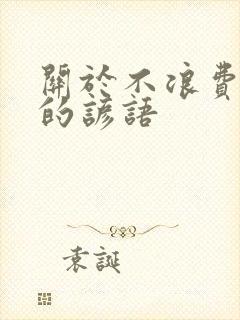 關於不浪費
的諺語
袁誕